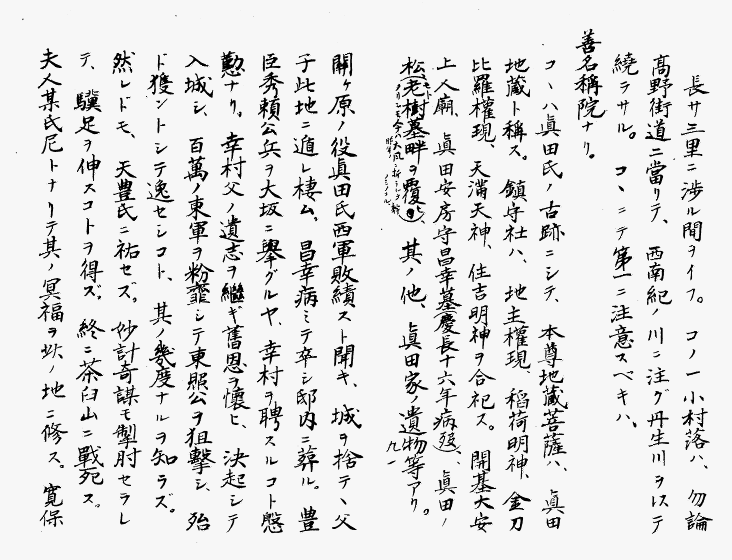 長サ三里ニ渉ル間ヲイフ。コノ一小村落ハ、勿論
高野街道ニ當リテ、西南紀ノ川ニ注グ丹生川ヲ以テ
繞ラサル。コヽニテ第一ニ注意スベキハ、
善名稱院ナリ。
コヽハ眞田氏ノ古跡ニシテ、本尊地藏菩薩ハ、眞田
地藏ト稱ス。鎮守社ハ、地主權現、稻荷明神、金刀
比羅權現、天滿天神、住吉明神ヲ合祀ス。開基大安
上人廟、眞田安房守昌幸墓慶長十六年病歿、眞田ノ
松老樹墓畔ヲ覆ヒ、其ノ他、眞田家ノ遺物等アリ。
九一
關ヶ原ノ役眞田氏西軍敗績スト聞キ、城ヲ捨テヽ父
子此地ニ遁レ棲ム。昌幸病ミテ卒シ邸内ニ葬ル。豊
臣秀頼公兵ヲ大坂ニ擧グルヤ、幸村ヲ聘スルコト慇
懃ナリ。幸村父ノ遺志ヲ繼ギ舊恩ヲ懷ヒ、決起シテ
入城シ、百萬ノ東軍ヲ粉韲シテ東照公ヲ狙擊シ、殆
ド獲ントシテ逸セシコト、其ノ幾度ナルヲ知ラズ。
然レドモ、天豊氏ニ祐セズ。妙計奇謀モ掣肘セラレ
テ、驥足ヲ伸スコトヲ得ズ。終ニ茶臼山ニ戰死ス。
夫人某氏尼トナリテ其ノ冥福ヲ此ノ地ニ修ス。寛保